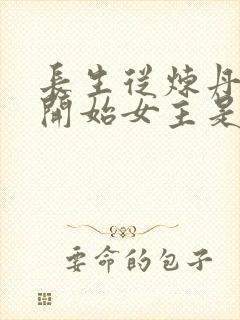 長生從煉丹
開始女主是
要命的包子